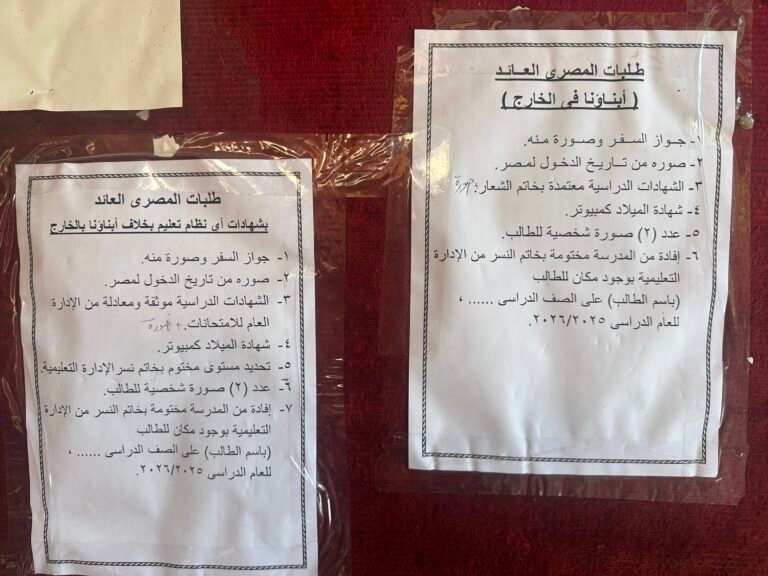 طلبات المصرى العائد
( أبناؤنا فى الخارج )
١- جواز السفر وصورة منه.
٢- صوره من تاريخ الدخول لمصر.
٣- الشهادات الدراسية معتمدة بخاتم الشعار + صورة
٤- شهادة الميلاد كمبيوتر.
٥- عدد (٢) صورة شخصية للطالب.
٦- إفادة من المدرسة مختومة بخاتم النسر من الإدارة
التعليمية بوجود مكان للطالب
(باسم الطالب) على الصف الدراسى ...... ،
للعام الدراسى ٢٠٢٦/٢٠٢٥.
طلبات المصرى العائد
بشهادات أى نظام تعليم بخلاف أبناؤنا بالخارج
١- جواز السفر وصورة منه.
٢- صوره من تاريخ الدخول لمصر.
٣- الشهادات الدراسية موثقة ومعادلة من الإدارة
العام للامتحانات. + صورة
٤- شهادة الميلاد كمبيوتر.
٥- تحديد مستوى مختوم بخاتم نسر الإدارة التعليمية.
٦- عدد (٢) صورة شخصية للطالب.
٧- إفادة من المدرسة مختومة بخاتم النسر من الإدارة
التعليمية بوجود مكان للطالب
(باسم الطالب) على الصف الدراسى ...... ،
للعام الدراسى ٢٠٢٦/٢٠٢٥.